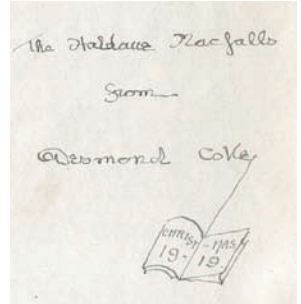 The Haldane Macfalls
from
Desmond Coke
CHRIST-MAS
19-19.